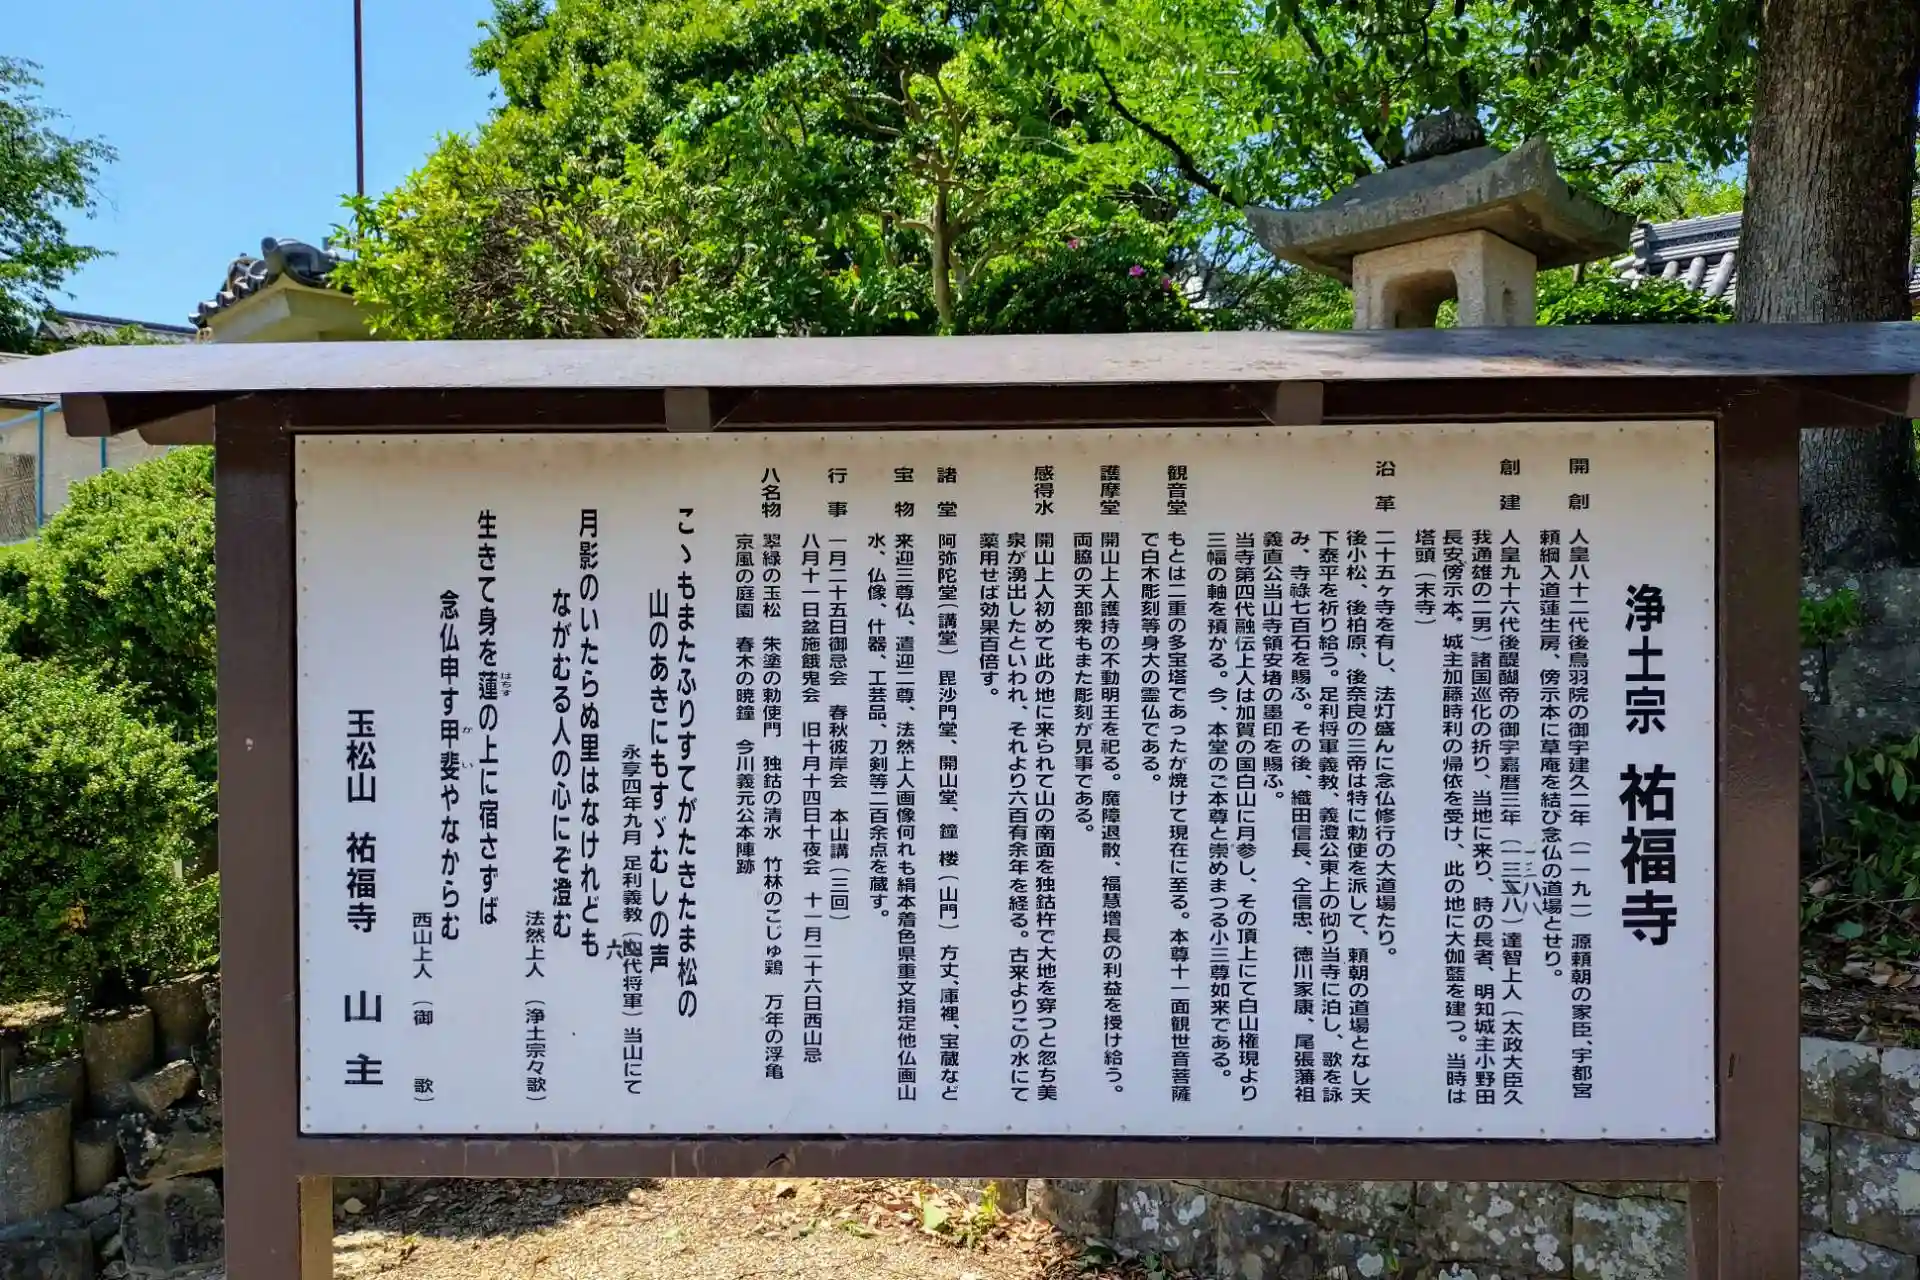 浄土宗 祐福寺
開創 人皇八十二代後鳥羽院の御宇建久二年（一一九一）源頼朝の家臣、宇都宮
頼綱入道蓮生房、傍示本に草庵を結び念仏の道場とせり。
創建 人皇九十六代後醍醐帝の御宇嘉暦三年（一三二八）達智上人（太政大臣久
我通雄の二男）諸国巡化の折り、当地に来り、時の長者、明知城主小野田
長安、傍示本、城主加藤時利の帰依を受け、此の地に大伽藍を建つ。当時は
塔頭（末寺）
沿革 二十五ヶ寺を有し、法灯盛んに念仏修行の大道場たり。
後小松、後柏原、後奈良の三帝は特に勅使を派して、頼朝の道場となし天
下泰平を祈り給う。足利将軍義教、義澄公東上の砌り当寺に泊し、歌を詠
み、寺祿七百石を賜ふ。その後、織田信長、仝信忠、徳川家康、尾張藩祖
義直公当山寺領安堵の墨印を賜ふ。
当寺第四代融伝上人は加賀の国白山に月参し、その頂上にて白山権現より
三幅の軸を預かる。今、本堂のご本尊と崇めまつる小三尊如来である。
観音堂 もとは二重の多宝塔であったが焼けて現在に至る。本尊十一面観世音菩薩
で白木彫刻等身大の霊仏である。
護摩堂 開山上人護持の不動明王を祀る。魔障退散、福慧増長の利益を授け給う。
両脇の天部衆もまた彫刻が見事である。
感得水 開山上人初めて此の地に来られて山の南面を独鈷杵で大地を穿つと忽ち美
泉が湧出したといわれ、それより六百有余年を経る。古来よりこの水にて
薬用せば効果百倍す。
諸堂 阿弥陀堂（講堂）毘沙門堂、開山堂、鐘楼（山門）方丈、庫裡、宝蔵など
宝物 来迎三尊仏、遣迎二尊、法然上人画像何れも絹本着色県重文指定他仏画山
水、仏像、什器、工芸品、刀剣等二百余点を蔵す。
行事 一月二十五日御忌会 春秋彼岸会 本山講（三回）
八月十一日盆施餓鬼会 旧十月十四日十夜会 十一月二十六日西山忌
八名物 翠緑の玉松 朱塗の勅使門 独鈷の清水 竹林のこじゅ鶏 万年の浮亀
京風の庭園 春木の暁鐘 今川義元公本陣跡
こゝもまたふりすてがたきたま松の
山のあきにもすゞむしの声
永享四年九月 足利義教（六代将軍）当山にて
月影のいたらぬ里はなけれども
ながむる人の心にぞ澄む
法然上人（浄土宗々歌）
生きて身を蓮の上に宿さずば
はちす
念仏申す甲斐やなからむ
かい
西山上人（御歌）
玉松山 祐福寺 山主